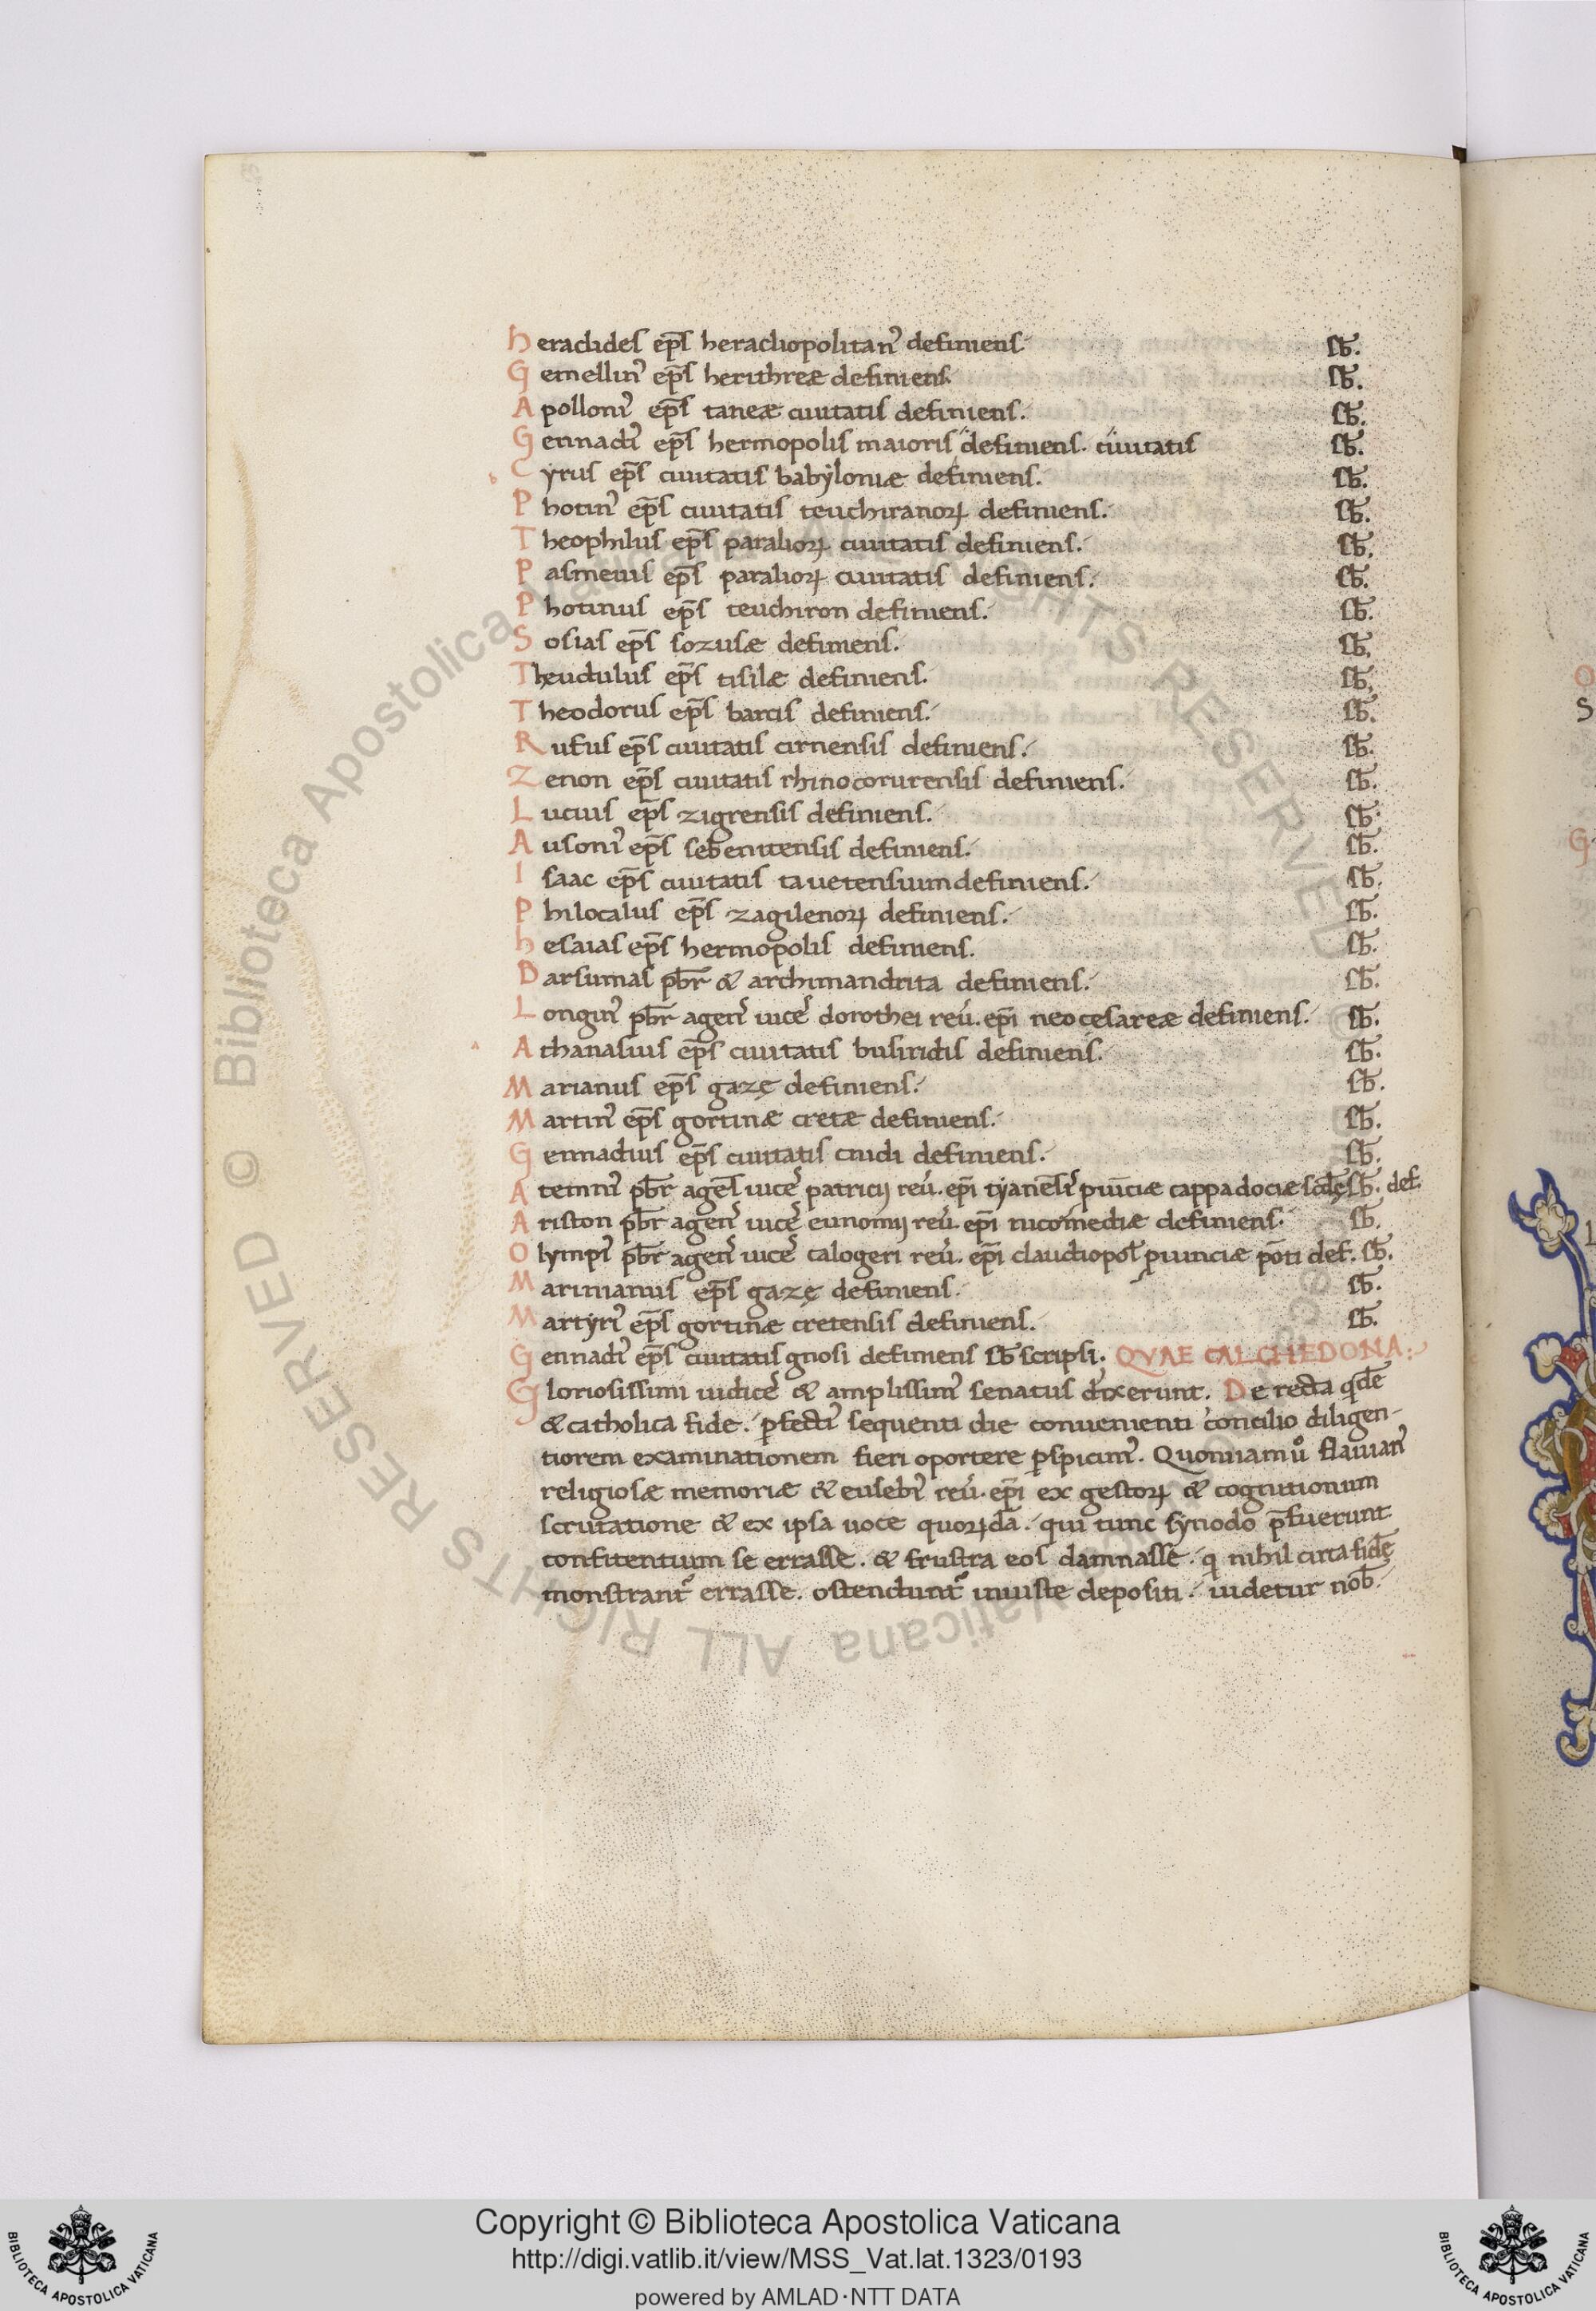 Heraclides ep̄s heracliopolitan᾽ definiens. sƀ.
Gemellin᾽ ep̄s herithreæ definiens. sƀ.
Apolloni᾽ ep̄s taneæ ciuitatis definiens. sƀ.
Gennadi᾽ ep̄s hermopolis maioris definiens. ciuitatis sƀ.
Cyrus ep̄s ciuitatis babyloniæ definiens. sƀ.
Photin᾽ ep̄s ciuitatis teuchiranoꝝ definiens. sƀ.
Theophilus ep̄s paralioꝝ ciuitatis definiens. sƀ.
Pasmeius ep̄s paralioꝝ ciuitatis definiens. sƀ.
Photinus ep̄s teuchiron definiens. sƀ.
Sosias ep̄s sozusæ definens. sƀ.
Theudulus ep̄s tisilæ definiens. sƀ.
Theodorus ep̄s barcis definiens. sƀ.
Rufus ep̄s ciuitatis cirnensis definiens. sƀ.
Zenon ep̄s ciuitatis rhinocorurensis definiens. sƀ.
Lucius ep̄s zigrensis definiens. sƀ.
Ausoni᾽ ep̄s sebenitensis definiens. sƀ.
Isaac ep̄s ciuitatis tauetensium definiens. sƀ.
Philocalus ep̄s zagilenoꝝ definiens. sƀ.
Hesaias ep̄s hermopolis definiens. sƀ.
Barsumas pƀr & archimandrita definiens. sƀ.
Longin᾽ pƀr agen᾽ uice᾽ dorothei reu᾽. ep̄i neocesareæ definiens. sƀ.
Athanasius ep̄s ciuitatis busiridis definiens. sƀ.
Marianus ep̄s gazę definiens. sƀ.
Martin᾽ ep̄s gortinæ cretæ definiens. sƀ.
Gennadius ep̄s ciuitatis cnidi definiens. sƀ.
Atemni᾽ pƀr agēs uice᾽ patricij reu᾽. ep̄i tyanēsi᾽ puīciæ cappadociæ scdę sƀ. def.
Ariston pƀr agen᾽ uice᾽ eunomij reu᾽. ep̄i nicomediæ definiens. sƀ.
Olympi᾽ pƀr agen᾽ uice᾽ calogeri reu᾽. ep̄i claudiopol̄ puinciæ pōti def. sƀ.
Marinianus ep̄s gazę definiens. sƀ.
Martyri᾽ ep̄s gortinæ cretensis definiens. sƀ.
Gennadi᾽ ep̄s ciuitatis gnosi definiens sƀscripsi. QVAE CALCHEDONA:
Gloriosissimi iudice᾽ & amplissim᾽ senatus dixerunt. De recta qd̄e
& catholica fide. ꝑfecti᾽ sequenti die conuenienti concilio diligen-
tiorem examinationem fieri oportere ꝑspicim᾽. Quoniam ů flauian᾽
religiosæ memoriæ & eusebi᾽ reu᾽. ep̄i ex gestoꝝ & cognitionum
scrutatione & ex ipsa uoce quoꝝdā. qui tunc synodo p̄fuerunt
confitentium se errasse. & frustra eos damnasse. q nihil circa fidē
monstrant᾽ errasse. ostendunt᾽ iniuste depositi. uidetur noƀ.
Copyright © Biblioteca Apostolica Vaticana
http://digi.vatlib.it/view/MSS_Vat.lat.1323/0193
powered by AMLAD·NTT DATA